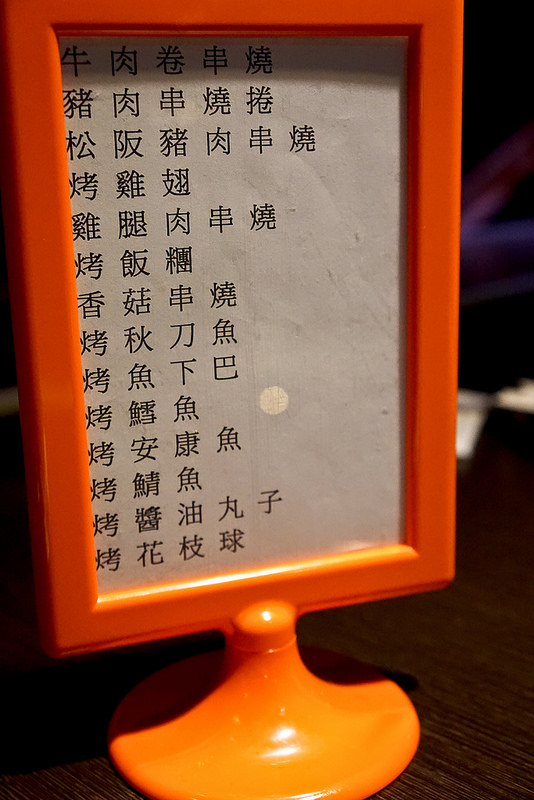 牛肉卷串燒
豬肉串燒捲
松阪豬肉串燒
烤雞翅
雞腿肉串燒
烤飯糰
香菇串燒
烤秋刀魚
烤魚下巴
烤鱈魚
烤安康魚
烤鯖魚
烤醬油丸子
烤花枝球